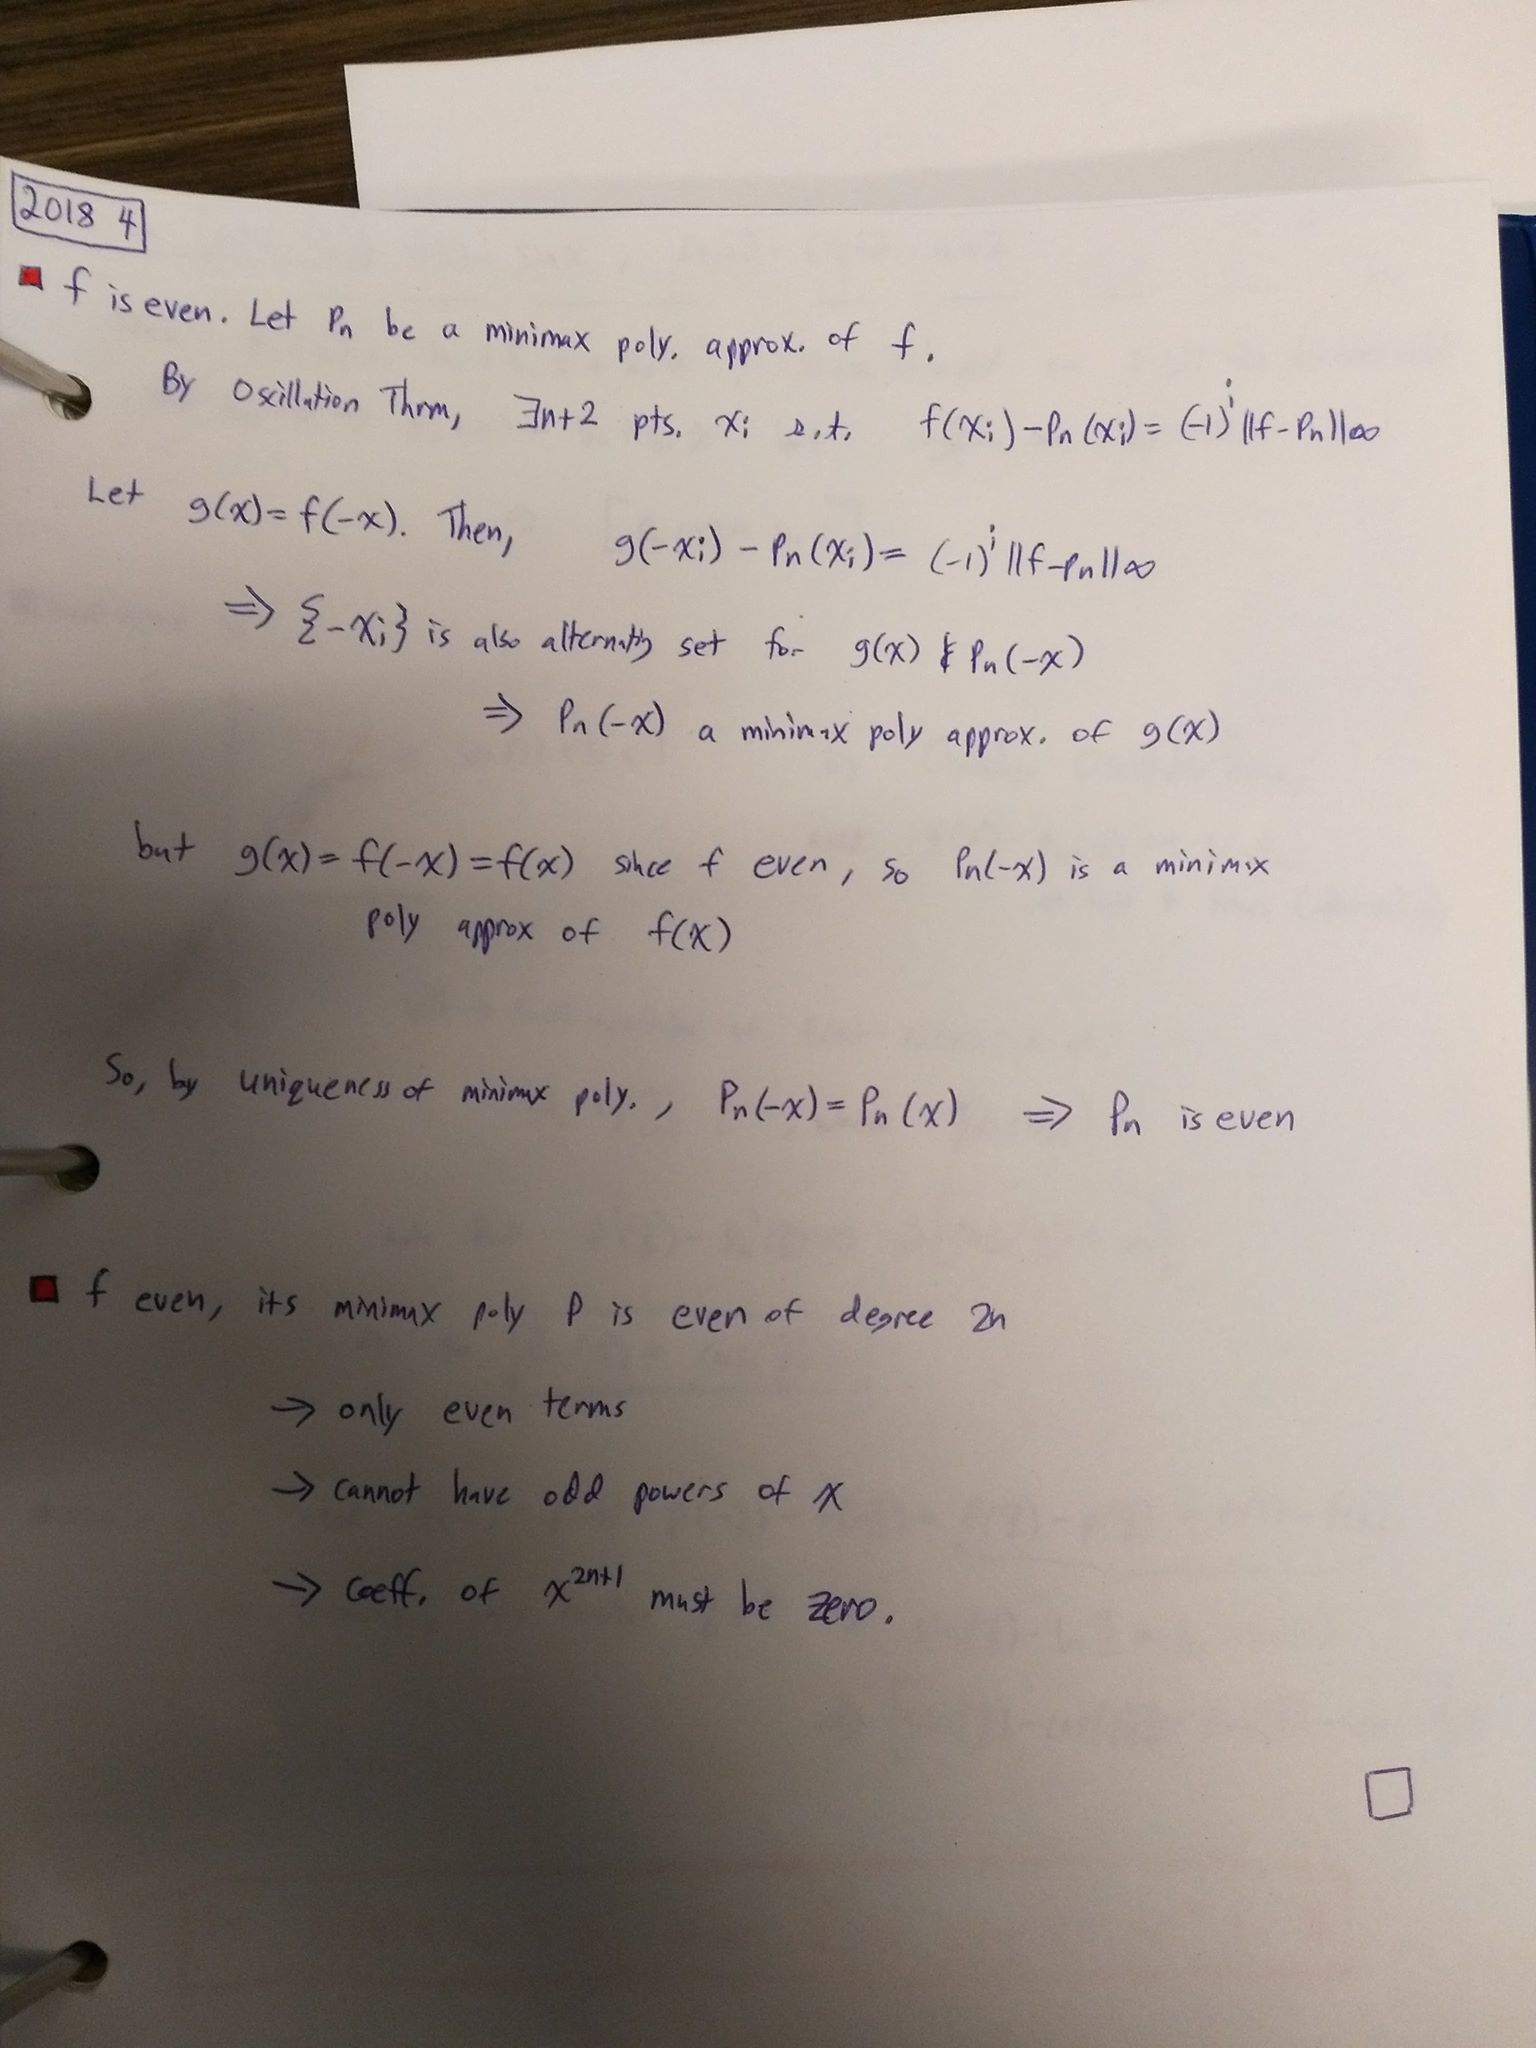 2018 4
f is even. Let Pn be a minimax poly. approx. of f.
By Oscillation Thrm, ∃n+2 pts. xi s.t. f(xi)-Pn(xi)= (-1)^i ||f-Pn||∞
Let g(x)=f(-x). Then, g(-xi) - Pn(xi)= (-1)^i ||f-Pn||∞
⇒ {-xi} is also alternatig set for g(x) & Pn(-x)
⇒ Pn(-x) a minimax poly approx. of g(x)
but g(x)= f(-x)=f(x) since f even, so Pn(-x) is a minimax
poly approx of f(x)
So, by uniqueness of minimax poly., Pn(-x)=Pn(x) ⇒ Pn is even
f even, its minimax poly P is even of degree 2n
→ only even terms
→ cannot have odd powers of x
→ coeff. of x^2n+1 must be zero.